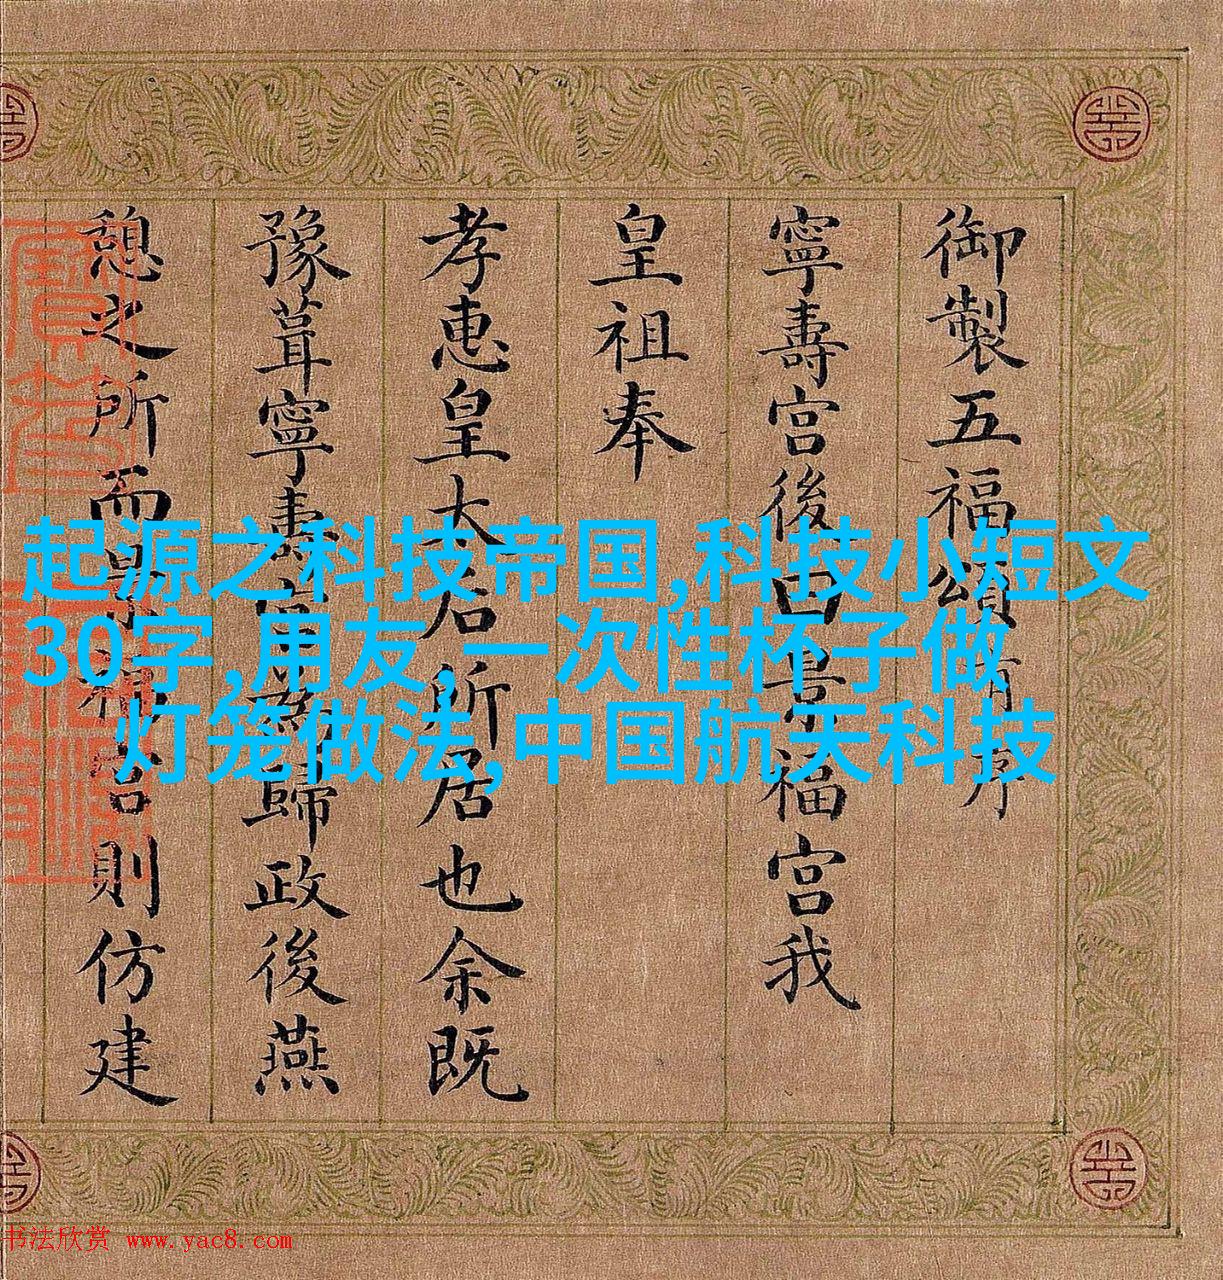 御製五福頌有序
寧壽宮後曰景福宮我
皇祖奉
孝惠皇太后所居也余既
豫葺寧壽宮為歸政後燕
憩之所而景福宮則仿建
起源之科技帝国,科技小短文
30字,用友,一次性杯子做
灯笼做法,中国航天科技
书法欣赏 www.yac8.com